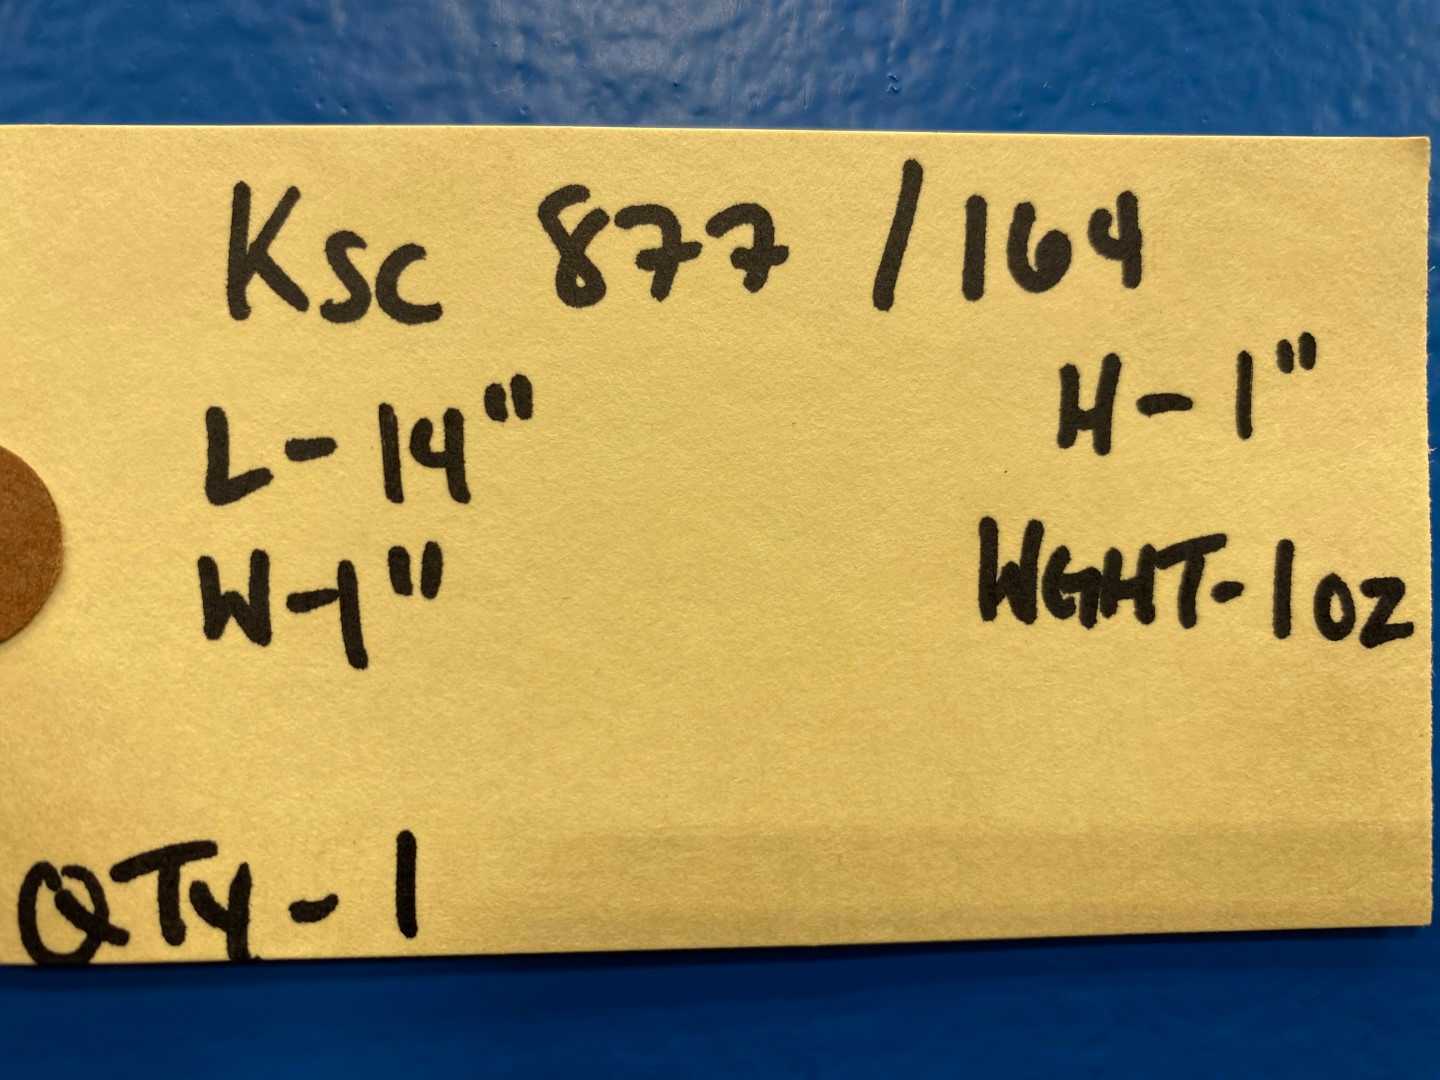 Ksc 877 / 164
L-14" H-1"
W-1" WGHT-1oz
QTy-1